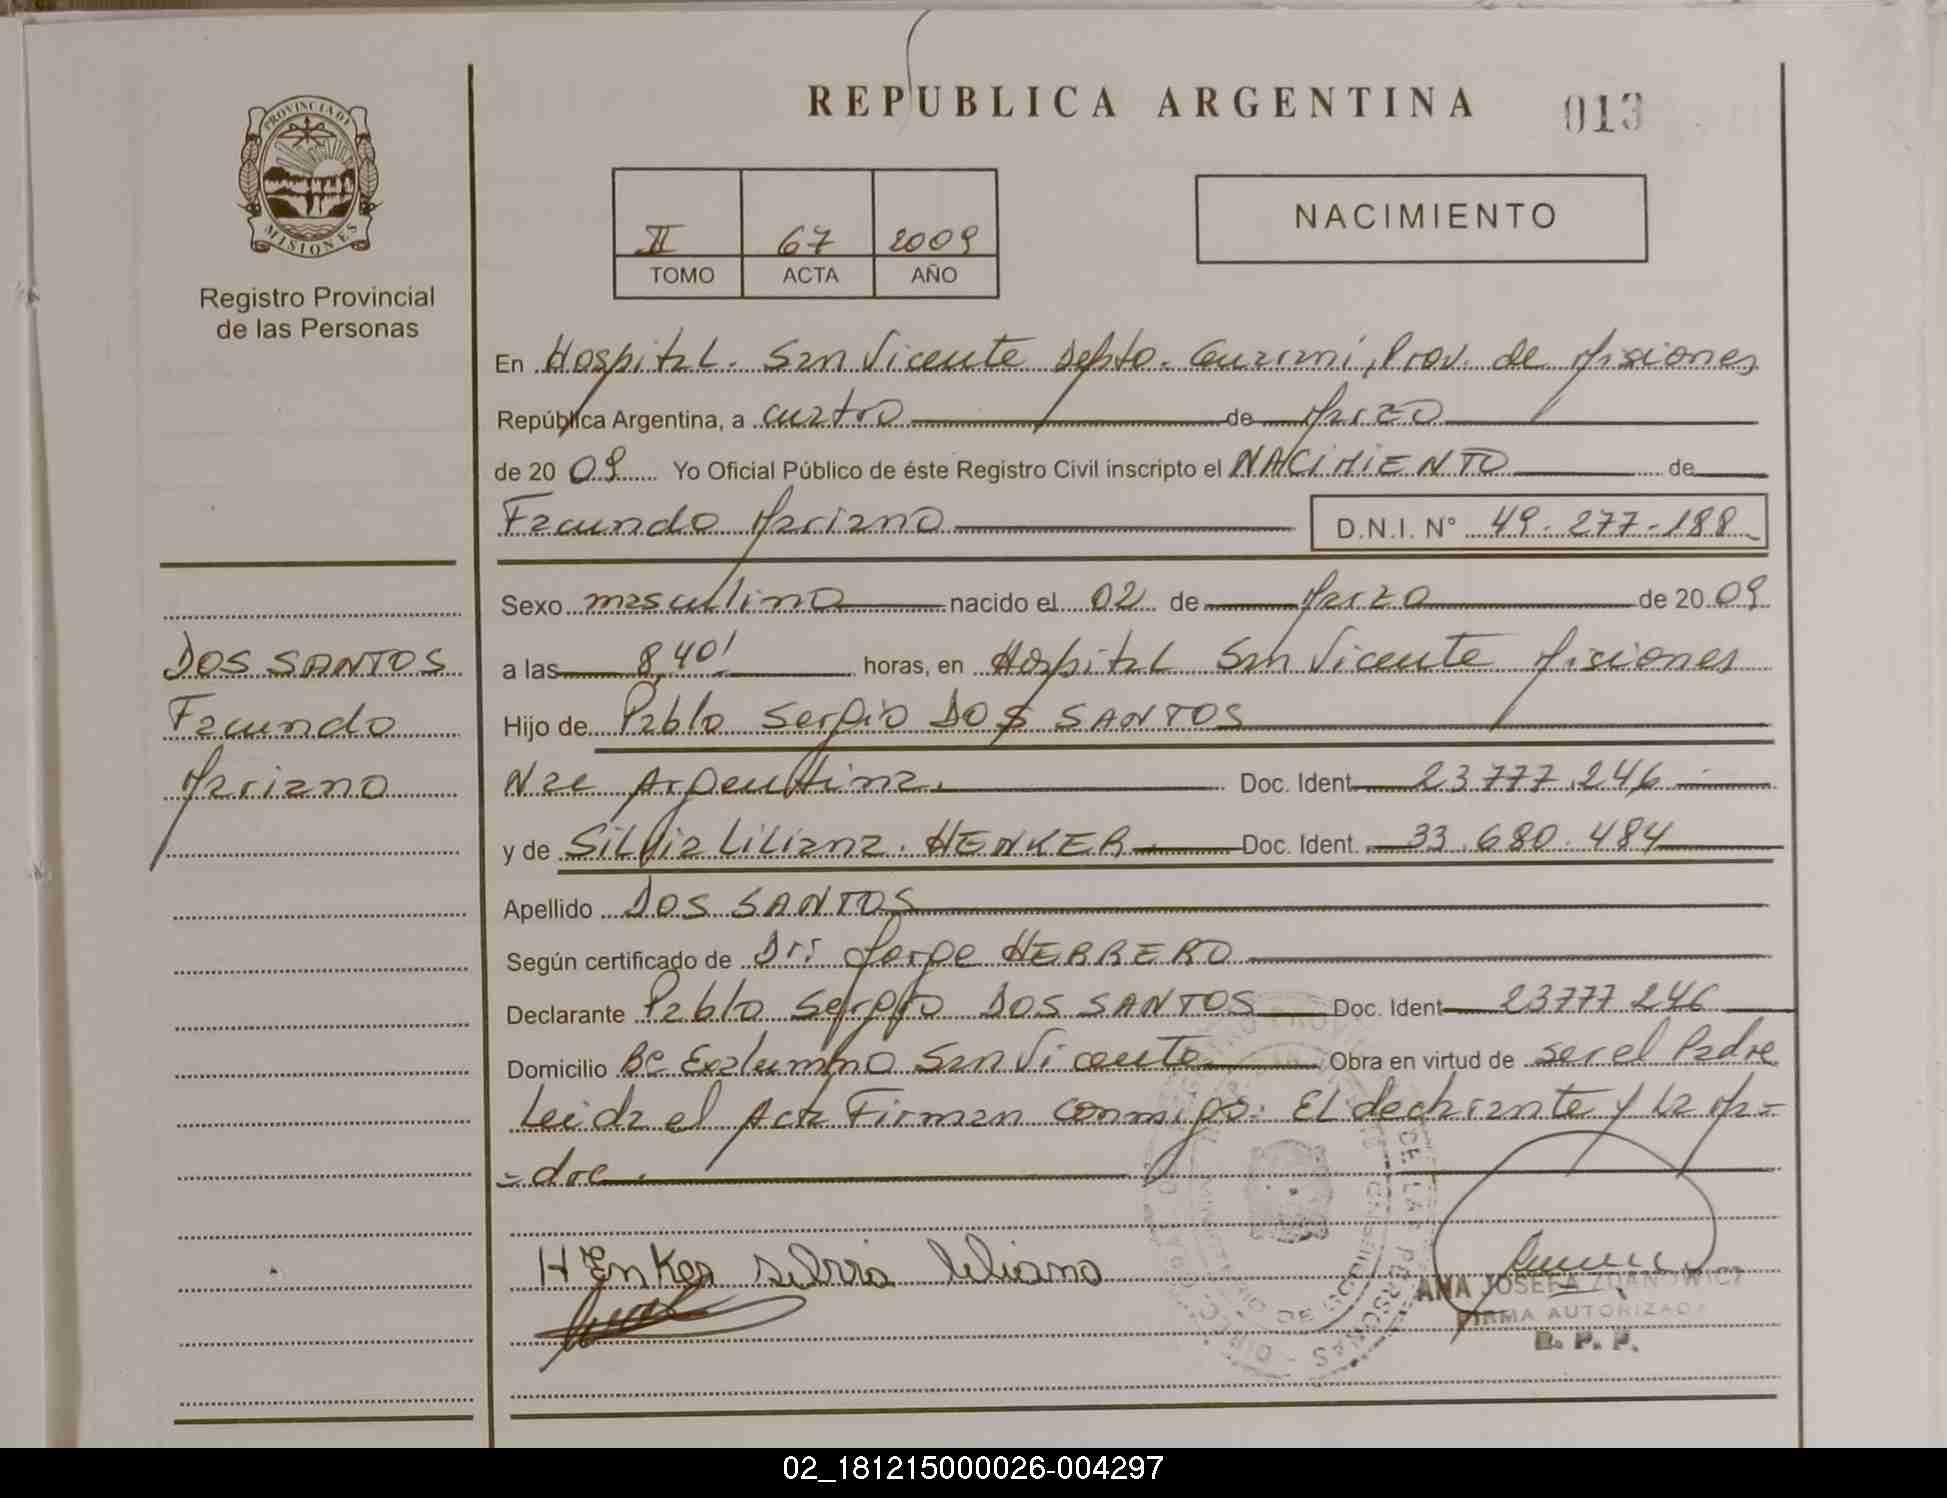 REPUBLICA ARGENTINA 013
PROVINCIA DE
MISIONES
Registro Provincial
de las Personas
II 67 2009
TOMO ACTA AÑO
NACIMIENTO
En Hospital. San Vicente Depto. Guarani, Prov. de Misiones
República Argentina, a cuatro de Marzo
de 20 09 Yo Oficial Público de éste Registro Civil inscripto el NACIMIENTO de
Facundo Mariano D.N.I. N° 49-277-188
Sexo masculino nacido el 02 de Marzo de 20 09
a las 8,40' horas, en Hospital San Vicente Misiones
Hijo de Pablo Sergio DOS SANTOS
Nac Argentina. Doc. Ident 23.777.246
y de Silvia Liliana. HENKER. Doc. Ident. 33.680.484
Apellido DOS SANTOS
Según certificado de Dr: Jorge HERRERO
Declarante Pablo Sergio DOS SANTOS Doc. Ident 23777246
Domicilio San Vicente Obra en virtud de ser el Padre
Leida el Acta Firman conmigo: El declarante y la Ma=
=dre.
DOS SANTOS
Facundo
Mariano
HEnker silvia liliana
ANA JOSEFA ZUANOWICZ
FIRMA AUTORIZADA
R. P. P.
02_181215000026-004297